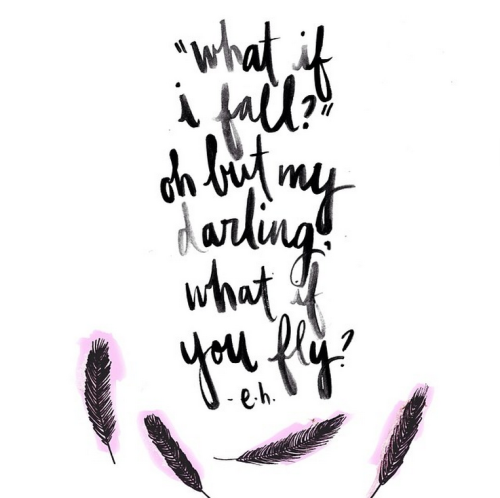 "what if
i fall?"
oh but my
darling,
what if
you fly?
-e.h.